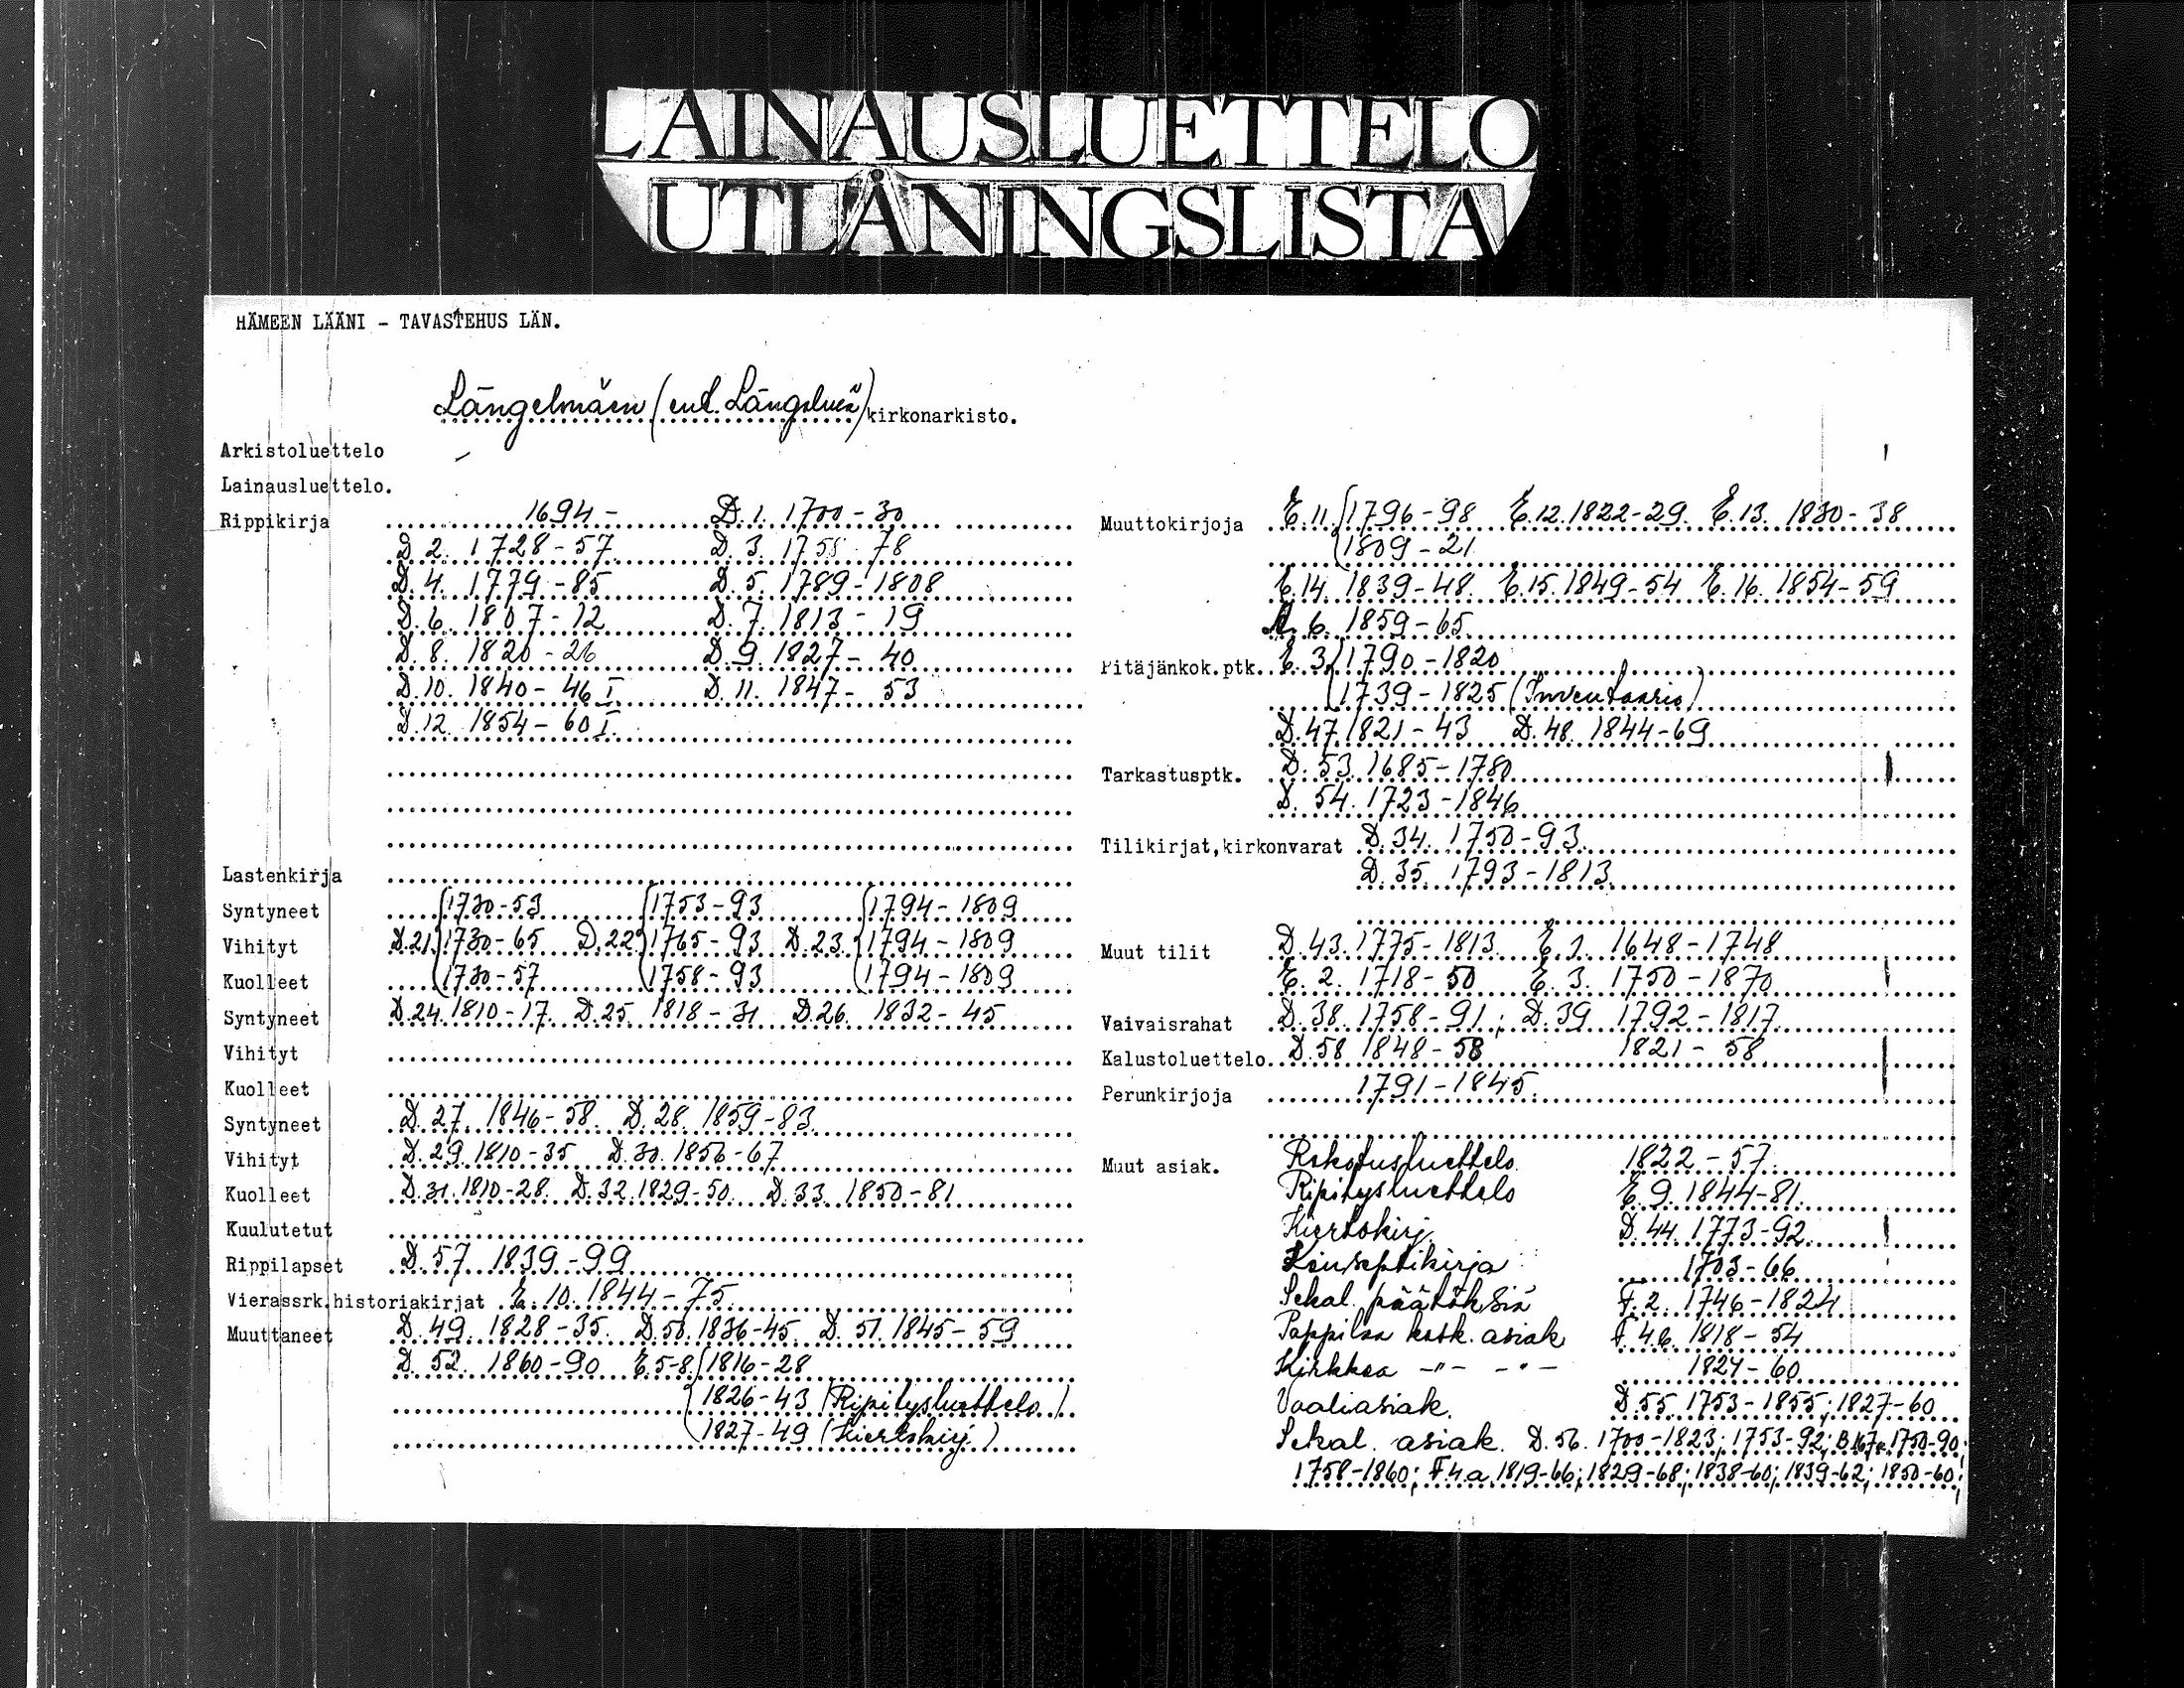 LAINAUSLUETTELO
UTLÅNINGSLISTA
HÄMEEN LÄÄNI - TAVASTEHUS LÄN.
Längelmäen (ent. Längelmä) kirkonarkisto.
Arkistoluettelo -
Lainausluettelo.
Rippikirja 1694- D.1. 1700-30
D.2. 1728-57 D.3. 1758-78
D.4. 1779-85 D.5. 1789-1808
D.6. 1807-12 D.7. 1813-19
D.8. 1820-26 D.9. 1827-40
D.10. 1840-46 I D.11. 1847-53
D.12. 1854-60 I.
Lastenkirja
Syntyneet 1730-53 1753-93 1794-1809
Vihityt D.21. 1730-65 D.22. 1765-93 D.23. 1794-1809
Kuolleet 1730-57 1758-93 1794-1809
Syntyneet D.24. 1810-17. D.25. 1818-31 D.26. 1832-45
Vihityt
Kuolleet
Syntyneet D.27. 1846-58. D.28. 1859-83.
Vihityt D.29. 1810-35 D.30. 1856-67
Kuolleet D.31. 1810-28. D.32. 1829-50. D.33. 1850-81
Kuulutetut
Rippilapset D.57. 1839-99
Vierassrk.historiakirjat E.10. 1844-75.
Muuttaneet D.49. 1828-35. D.50. 1836-45. D.51. 1845-59
D.52. 1860-90 E.5-8. 1816-28
1826-43 (Ripitysluettelo.)
1827-49 (Kiertokirj.)
Muuttokirjoja E.11. 1796-98 E.12. 1822-29. E.13. 1830-38
1809-21
E.14. 1839-48. E.15. 1849-54 E.16. 1854-59
A.6. 1859-65
Pitäjänkok.ptk. E.3. 1790-1820
1739-1825 (Inventaario)
D.47. 1821-43 D.48. 1844-69
Tarkastusptk. D.53. 1685-1780
D.54. 1723-1846
Tilikirjat,kirkonvarat D.34. 1750-93.
D.35. 1793-1813
Muut tilit D.43. 1775-1813. E.1. 1648-1748
E.2. 1718-50 E.3. 1750-1870
Vaivaisrahat D.38. 1758-91; D.39 1792-1817
Kalustoluettelo D.58 1848-58 1821-58
Perunkirjoja 1791-1845.
Muut asiak. Rokotusluettelo 1822-57.
Ripitysluettelo E.9. 1844-81.
Kiertokirj. D.44. 1773-92.
Konseptikirja 1703-66
Sekal. päätöksiä F.2. 1746-1824
Pappilaa kosk. asiak. F.4.b. 1818-54
Kirkkoa -"- -"- 1824-60
Vaaliasiak. D.55. 1753-1855; 1827-60
Sekal. asiak. D.56. 1700-1823; 1753-92; 1750-90;
1758-1860; F.4.a. 1819-66; 1829-68; 1838-60; 1839-62; 1850-60;